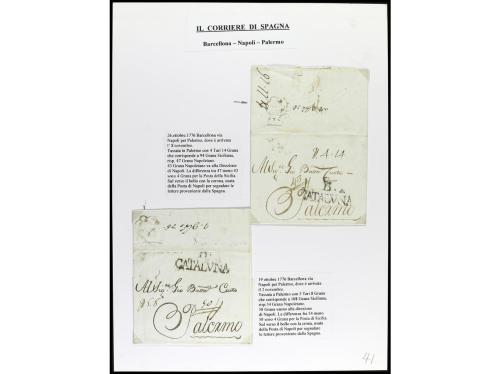 IL CORRIERE DI SPAGNA
Barcellona – Napoli – Palermo
26 ottobre 1776 Barcellona via
Napoli per Palermo, dove è arrivata
l' 8 novembre.
Tassata in Palermo con 4 Tari 14 Grana
che corrisponde a 94 Grana Siciliana,
risp. 47 Grana Napoletano.
43 Grana Napoletano va alla Direzione
di Napoli. La differenza tra 47 meno 43
sono 4 Grana per la Posta della Sicilia.
Sul verso il bollo con la corona, usata
della Posta di Napoli per segnalare le
lettere proveniente dalla Spagna.
4.14
B.
CATALUÑA
Palermo
B.
CATALUÑA
Palermo
19 ottobre 1776 Barcellona via
Napoli per Palermo, dove è arrivata
il 2 novembre.
Tassata a Palermo con 5 Tari 8 Grana
che corrisponde a 108 Grana Siciliana,
risp. 54 Grana Napoletano.
50 Grana vanno alla direzione
di Napoli. La differenza fra 54 meno
50 sono 4 Grana per la Posta di Sicilia.
Sul verso il bollo con la corona, usata
della Posta di Napoli per segnalare le
lettere proveniente dalla Spagna.
41